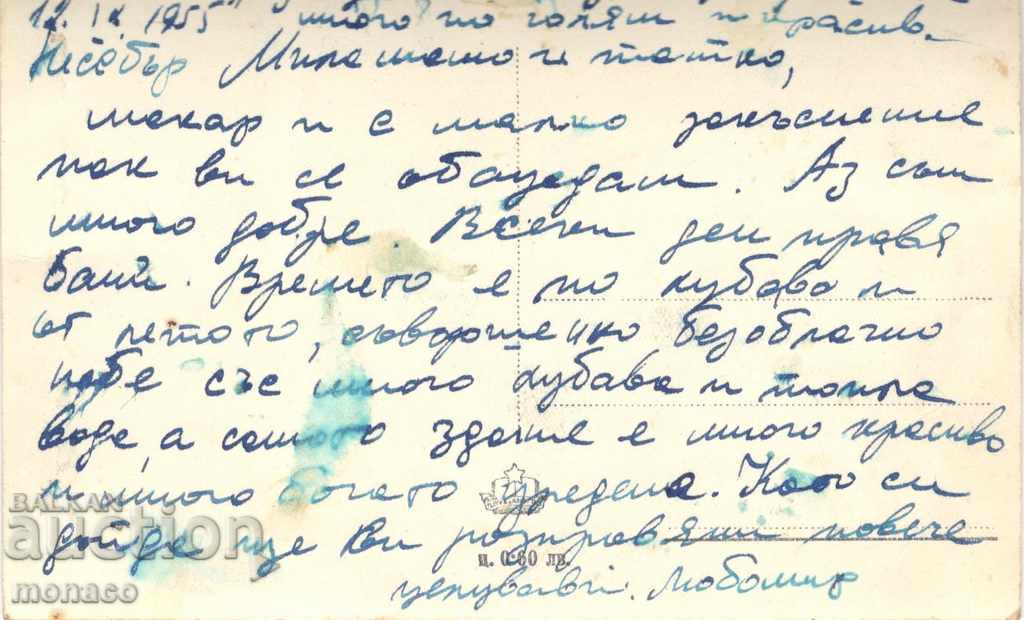 12.IX.1955 много по голям и красив.
Несебър Мила мамо и татко,
макар и с малко закъснение
пак ви се обаждам. Аз съм
много добре. Всеки ден правя
бани. Времето е по хубаво и
от летото, съвършенно безоблачно
небе със много хубава и топла
вода, а самото здание е много красиво
и много богато наредено. Като си
дойда ще ви разправям повече
ц. 0·60 лв.
целувам ви. Любомир
БАЛКАН
auction
monaco